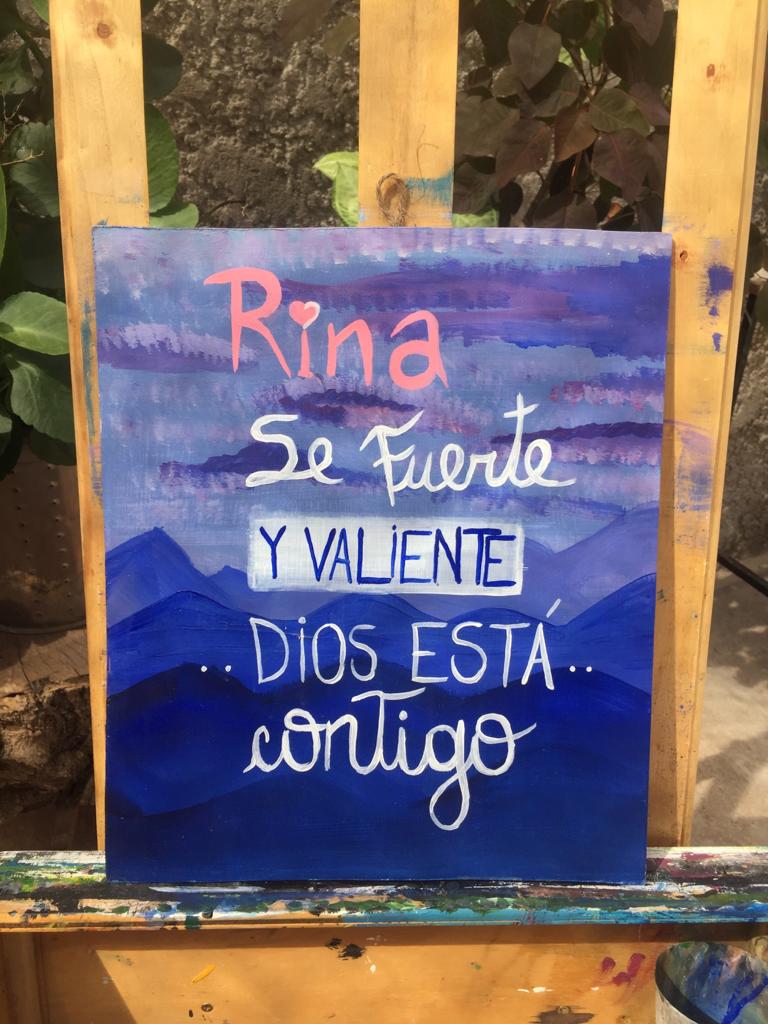 Rina
Se Fuerte
Y VALIENTE
..DiOS ESTÁ..
contigo